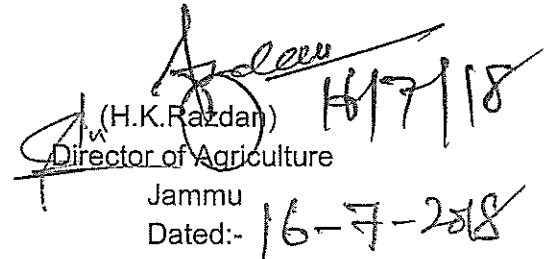 16/7/18
(H.K.Razdan)
Director of Agriculture
Jammu
Dated:- 16-7-2018